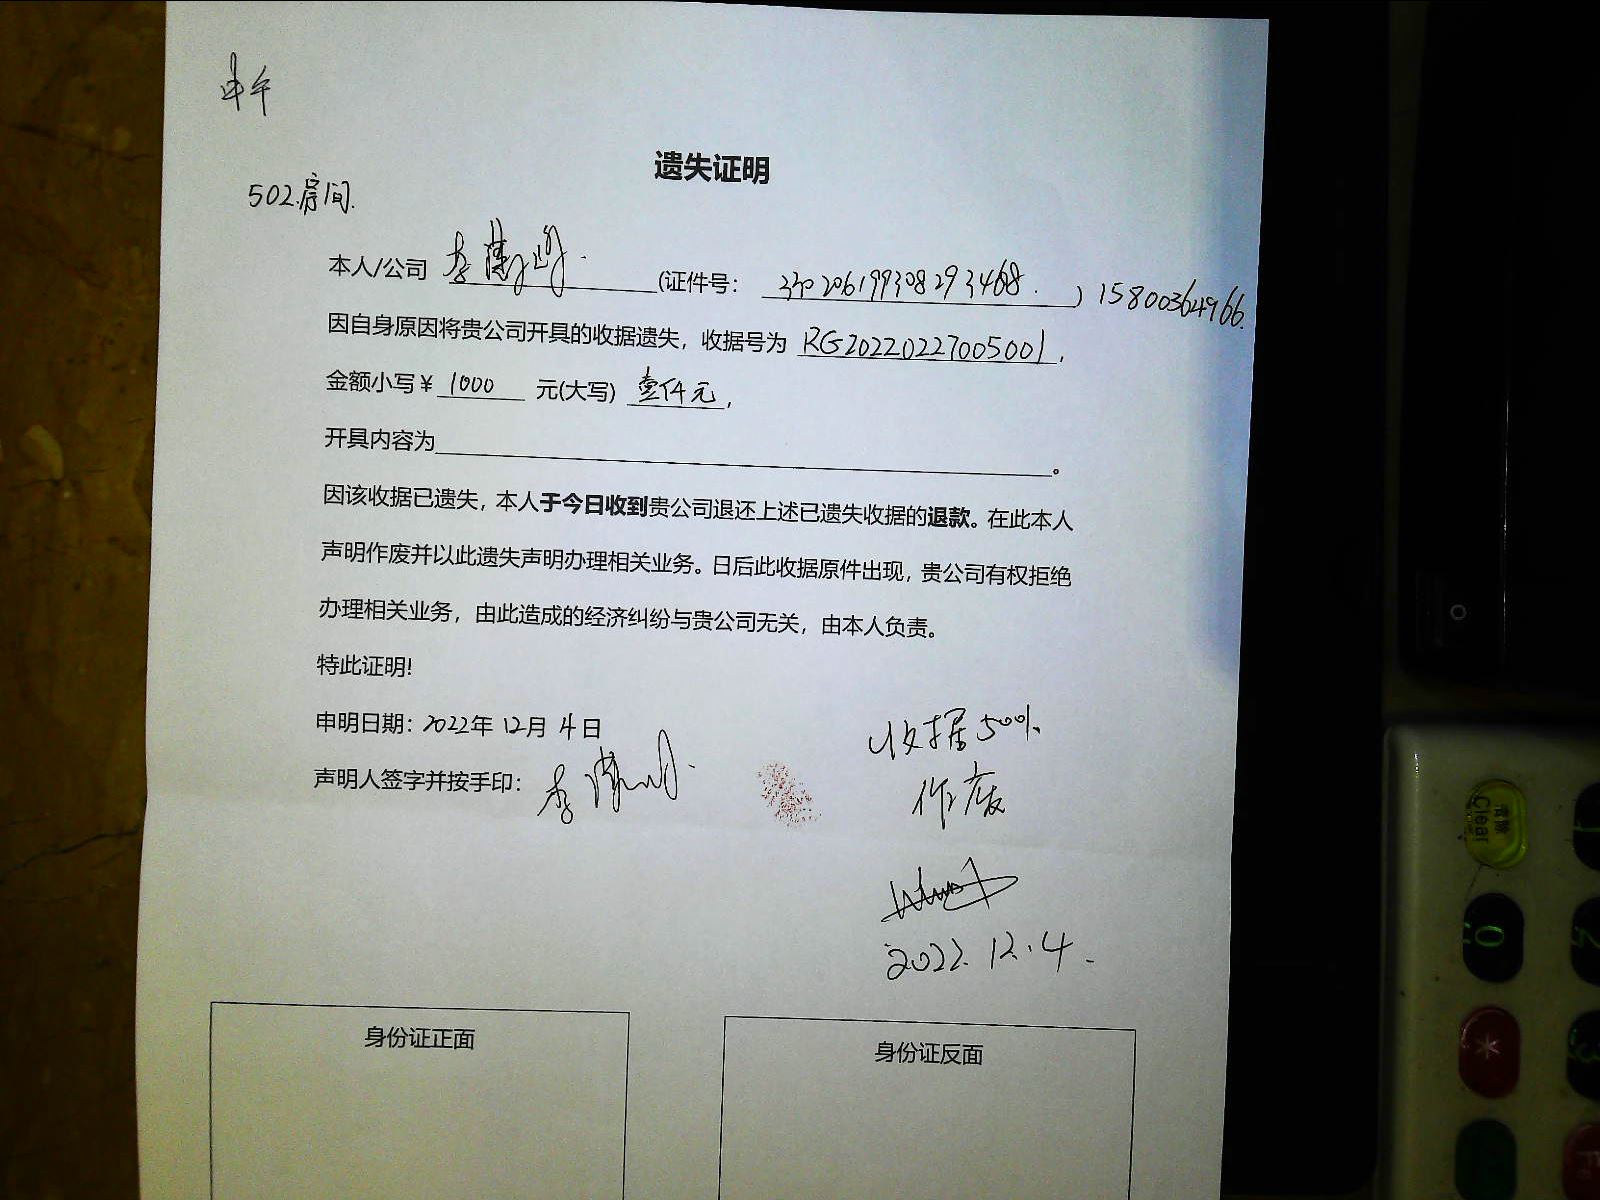 502.房间.
遗失证明
本人/公司 李 (证件号: 330206199308293468. ) 15800364966.
因自身原因将贵公司开具的收据遗失，收据号为 RG20220227005001,
金额小写￥1000 元(大写) 壹仟元,
开具内容为 。
因该收据已遗失，本人于今日收到贵公司退还上述已遗失收据的退款。在此本人
声明作废并以此遗失声明办理相关业务。日后此收据原件出现，贵公司有权拒绝
办理相关业务，由此造成的经济纠纷与贵公司无关，由本人负责。
特此证明!
申明日期: 2022年 12月 4日
声明人签字并按手印: 李
收据5001.
作废
2022.12.4.
身份证正面
身份证反面
Clear
清除
0
2
3
*